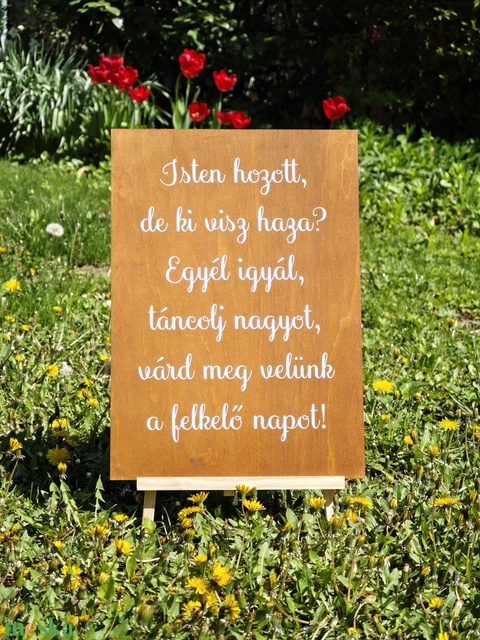 Isten hozott,
de ki visz haza?
Egyél igyál,
táncolj nagyot,
várd meg velünk
a felkelő napot!